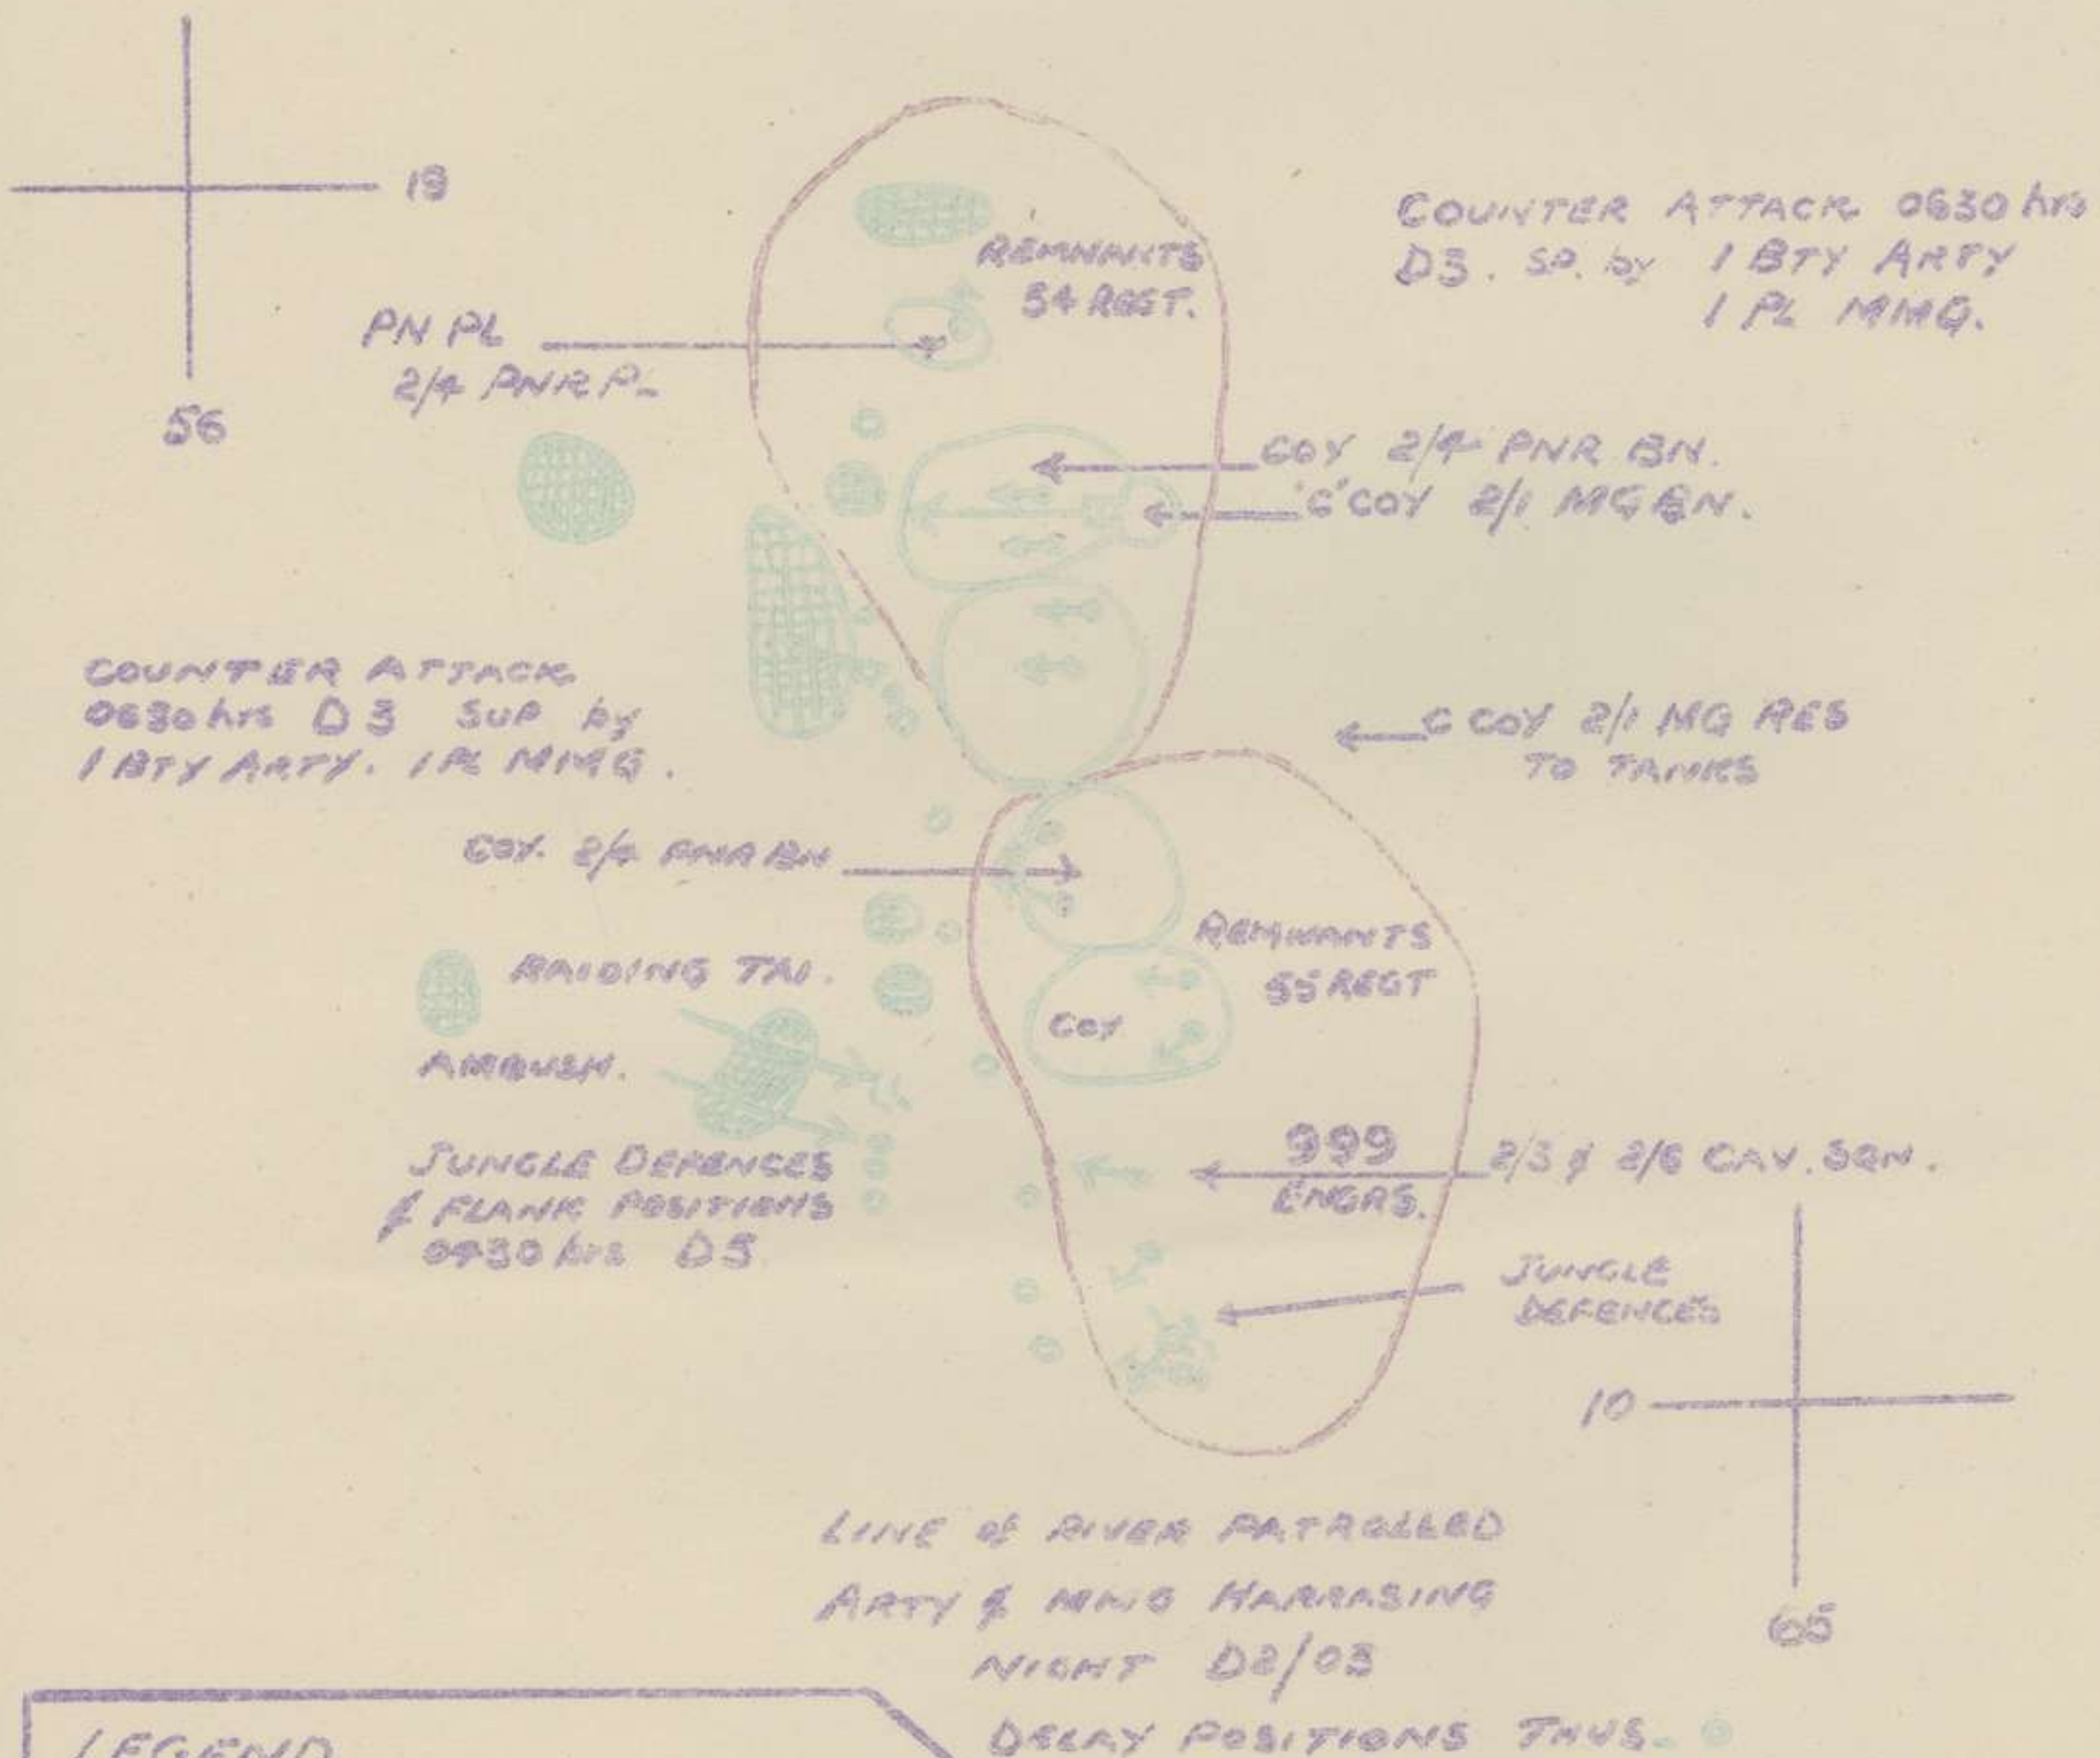 18
56
COUNTER ATTACK 0630 hrs
D3. SP. by 1 BTY ARTY
1 PL MMG.
REMNANTS
54 REGT.
PN PL
2/4 PNR
COY 2/4 PNR BN.
'C' COY 2/1 MG BN.
COUNTER ATTACK
0630 hrs D3 SUP by
1 BTY ARTY. 1 PL MMG.
C COY 2/1 MG RES
TO TANKS
COY. 2/4 PNR BN
REMNANTS
55 REGT
COY
RAIDING
AMBUSH.
JUNGLE DEFENCES
& FLANK POSITIONS
0430 hrs
999
ENGRS.
2/3 & 2/6 CAV. SQN.
JUNGLE
DEFENCES
10
65
LINE of RIVER PATROLLED
ARTY & MMG HARRASING
NIGHT D2/D3
DELAY POSITIONS THUS.
LEGEND